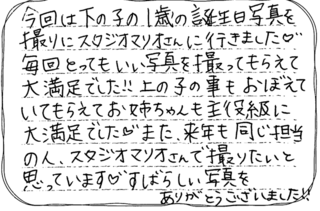 今回は下の子の1歳の誕生日写真を
撮りにスタジオマリオさんに行きました♡
毎回とってもいい写真を撮ってもらえて
大満足でした!! 上の子の事もおぼえて
いてもらえてお姉ちゃんも主役級に
大満足でした♡また、来年も同じ担当
の人、スタジオマリオさんで撮りたいと
思っています♡すばらしい写真を
ありがとうございました!!